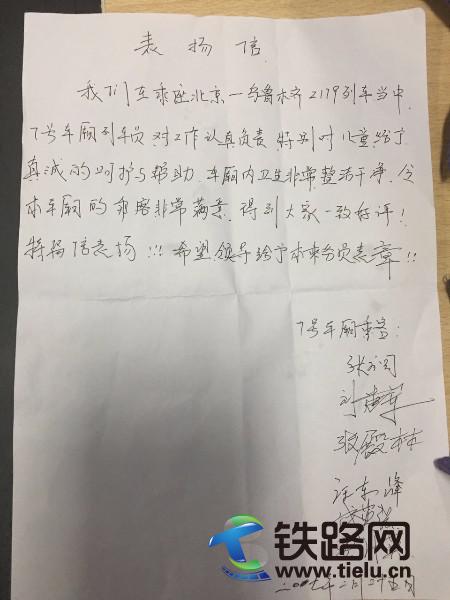 表扬信
我们在乘座北京—乌鲁木齐Z179列车当中,
7号车厢列车员,对工作认真负责,特别对儿童给予
真诚的呵护与帮助,车厢内卫生非常整洁干净,令
本车厢的乘客非常满意,得到大家一致好评!
特写信表扬!!!希望领导给予本乘务员表章!!
7号车厢乘客:
张殿林
铁路网
www.tielu.cn
二〇一七年二月二十五日